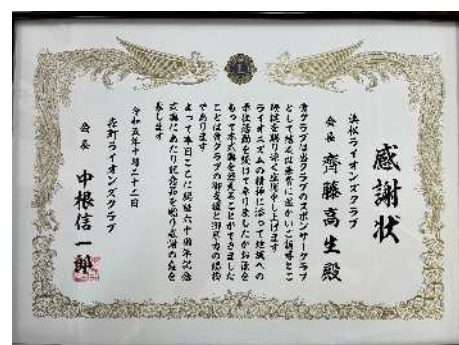 感謝状
浜松ライオンズクラブ
会長 齊藤高生殿
貴クラブは当クラブのスポンサークラブ
として結成以来常に温かいご指導とご
ライオニズムの精神に添って地域への
奉仕活動を続けて参りましたがお陰を
もって本式典を迎えることができました
ことは貴クラブの御支援と御尽力の賜物
であります
よって本日ここに認証六十周年記念
式典にあたり記念品を贈り感謝の意を
表します
令和五年十月二十二日
会長 中根信一郎
L